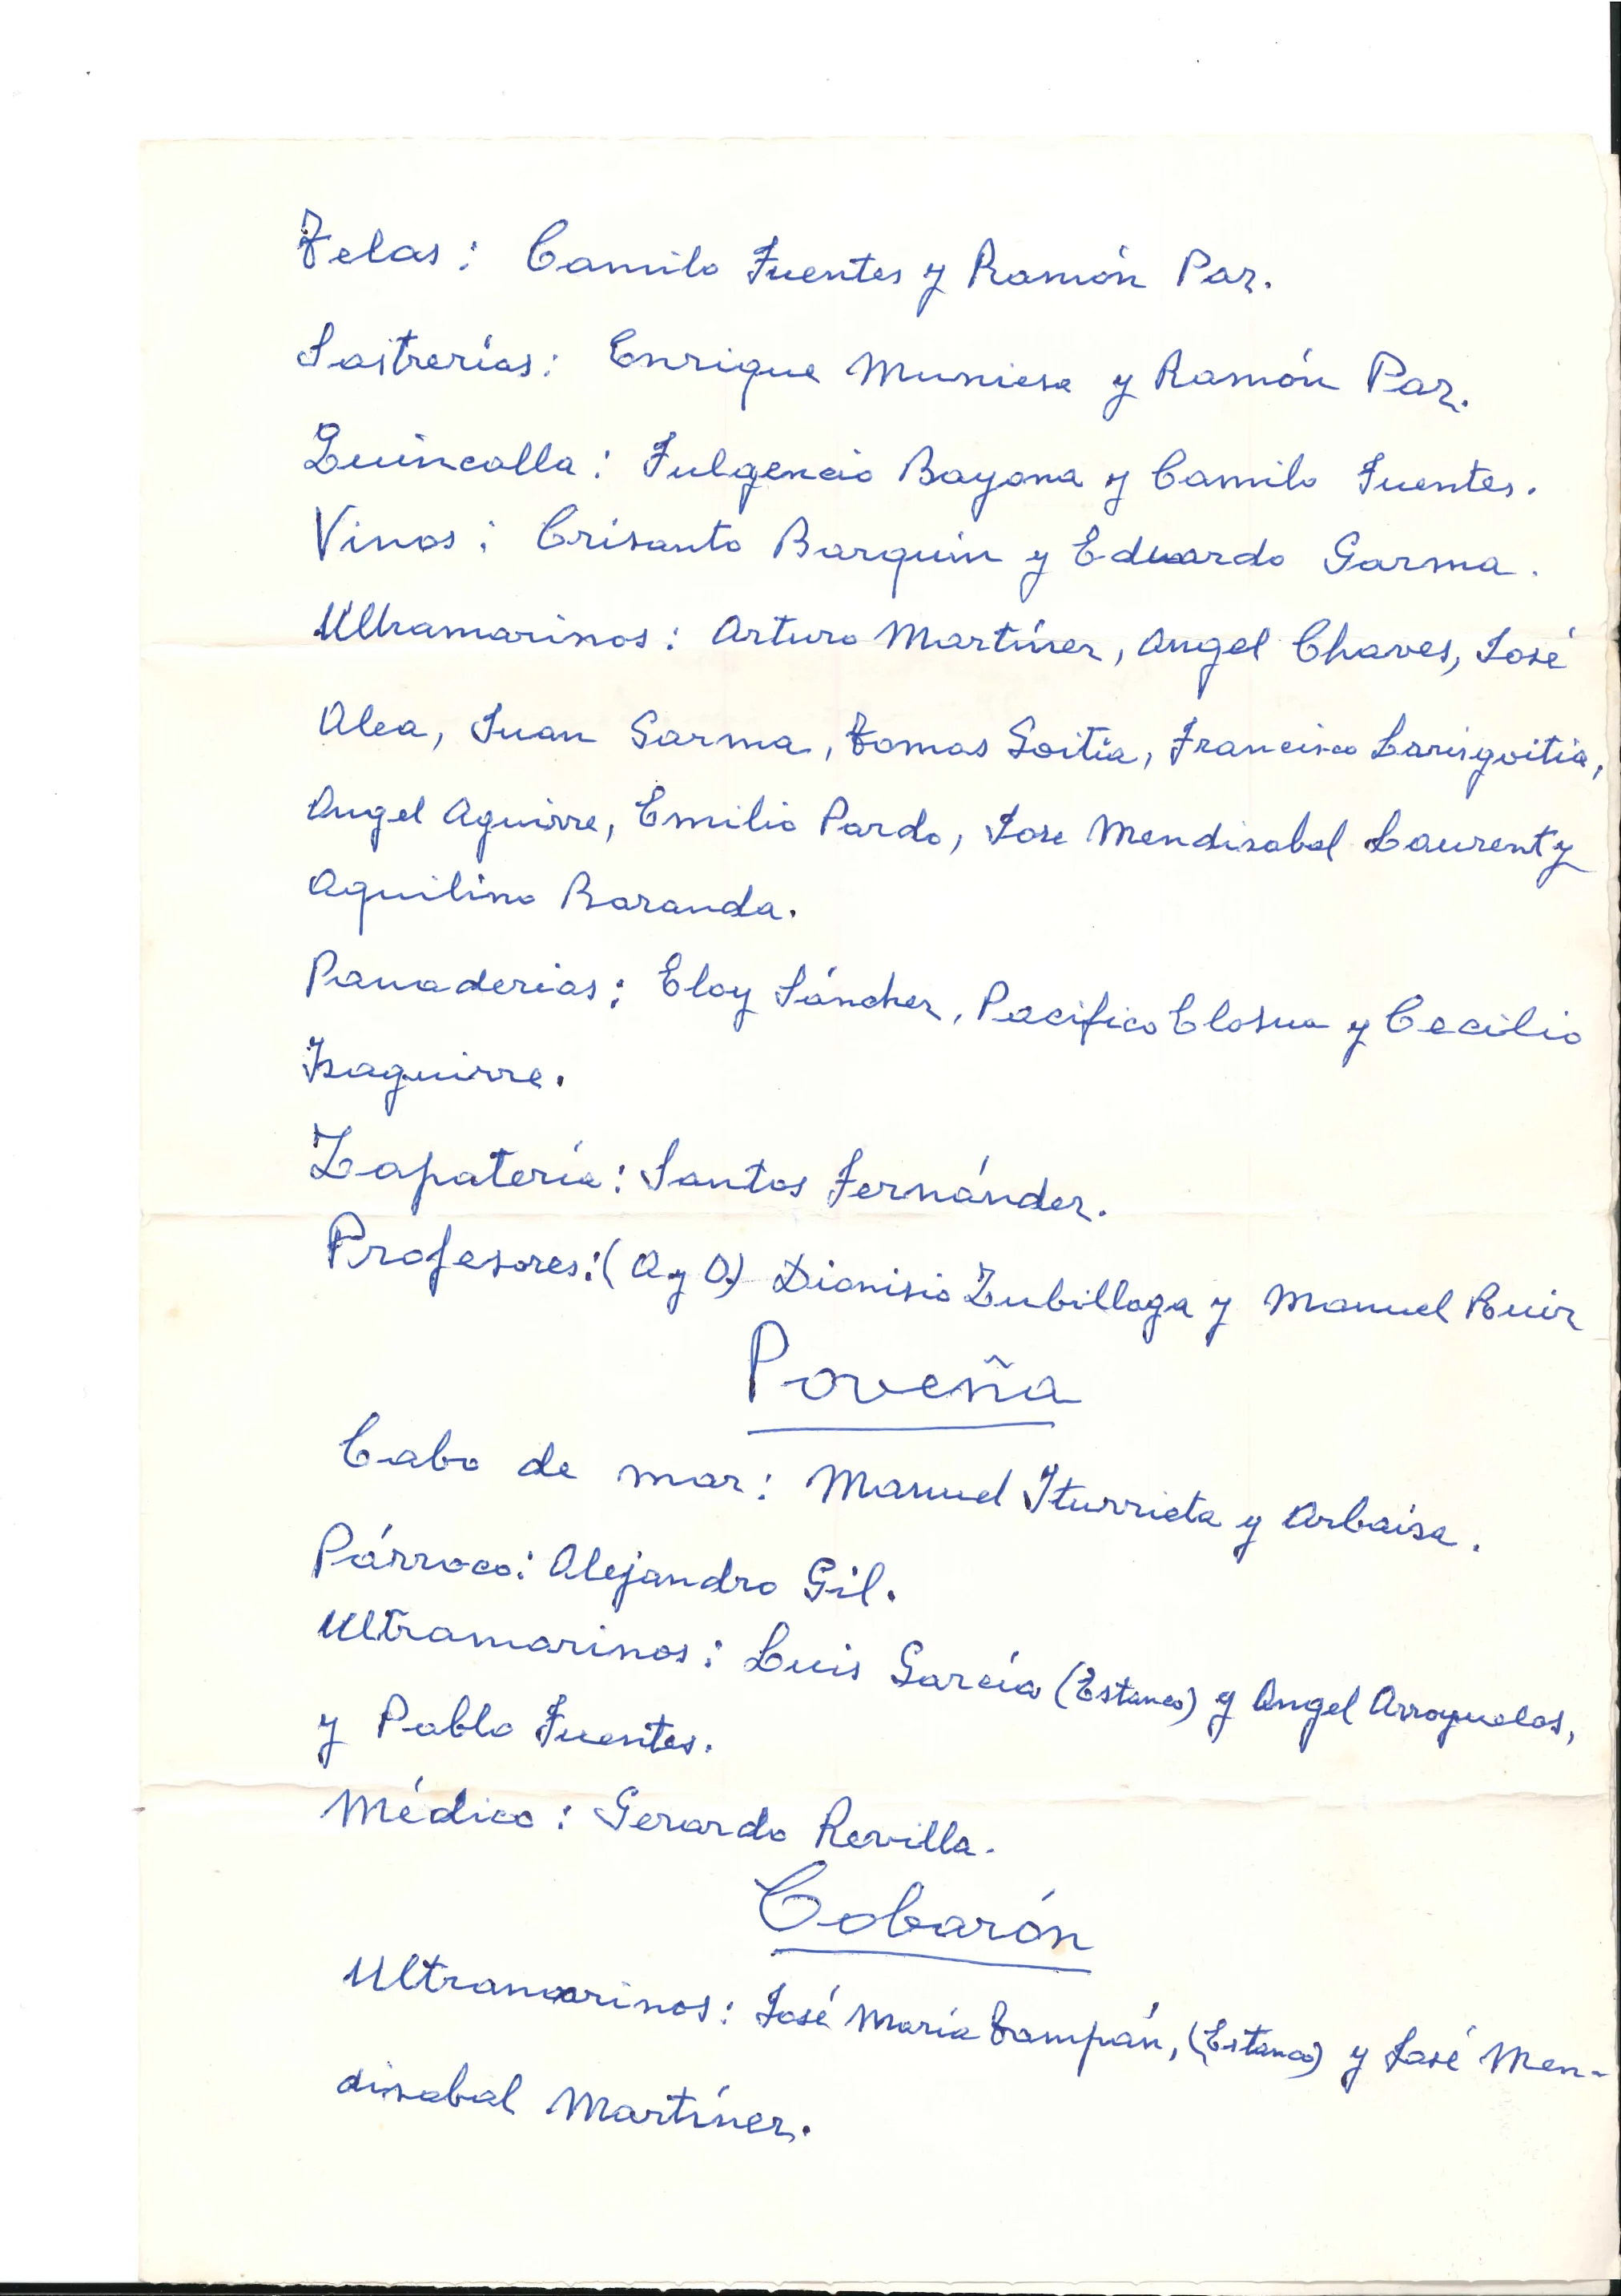 Telas: Camilo Fuentes y Ramón Paz.
Sastrerías: Enrique Muniesa y Ramón Paz.
Quincalla: Fulgencio Bayona y Camilo Fuentes.
Vinos: Crisanto Barquin y Eduardo Garma.
Ultramarinos: Arturo Martínez, Angel Chaves, José
Alea, Juan Garma, Tomas Goitia, Francisco Larisgoitia,
Angel Aguirre, Emilio Pardo, Jose Mendizabal Laurent y
Aquilino Baranda.
Panaderias: Eloy Sánchez, Pacifico Closua y Cecilio
Izaguirre.
Zapatería: Santos Fernández.
Profesores: (A y O) Dionisio Zubillaga y Manuel Ruiz
Poveña
Cabo de mar: Manuel Iturrieta y Arbaiza.
Párroco: Alejandro Gil.
Ultramarinos: Luis García (Estanco) y Angel Arroyuelos,
y Pablo Fuentes.
Médico: Gerardo Revilla.
Cobarón
Ultramarinos: José María Tampán, (Estanco) y José Men-
dizabal Martínez.